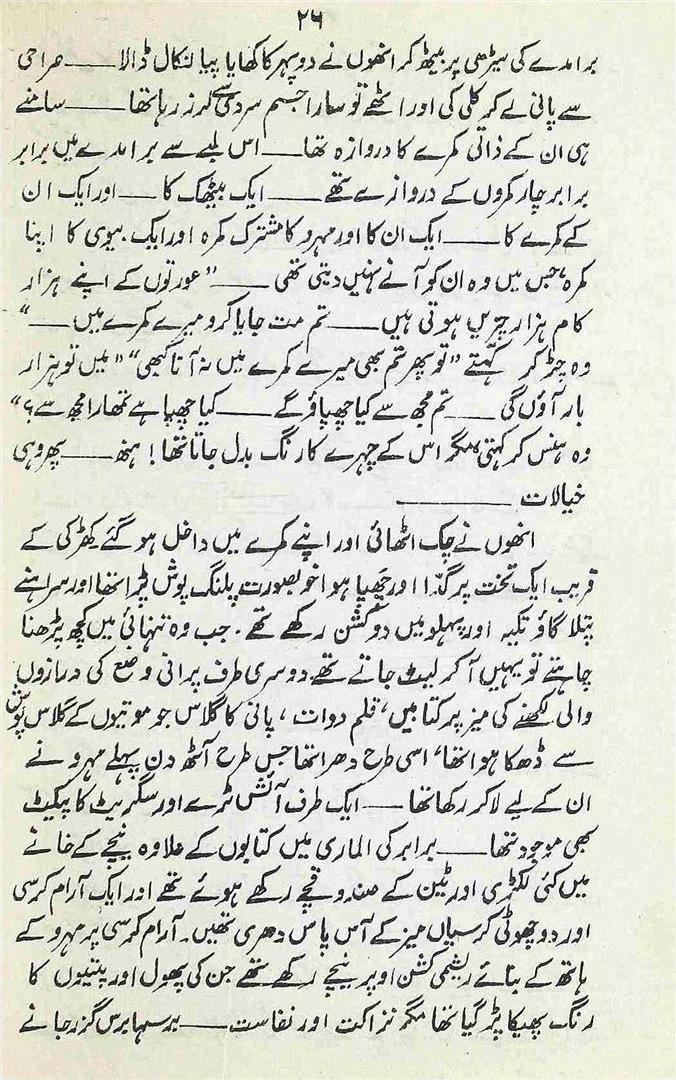 ۲۶
برامدے کی سیڑھی پر بیٹھ کر انھوں نے دوپہر کا کھایا پیا نکال ڈالا ـــــ صراحی
سے پانی لے کر کلی کی اور اٹھے تو سارا جسم سردی سے لرز رہا تھا ـــــ سامنے
ہی ان کے ذاتی کمرے کا دروازہ تھا ـــــ اس لمبے سے برامدے میں برابر
برابر چار کمروں کے دروازے تھے ـــــ ایک بیٹھک کا ـــــ اور ایک ان
کے کمرے کا ـــــ ایک ان کا اور مہرو کا مشترک کمرہ اور ایک بیوی کا اپنا
کمرہ، جس میں وہ ان کو آنے نہیں دیتی تھی ـــــ "عورتوں کے اپنے ہزار
کام ہزار چیزیں ہوتی ہیں ـــــ تم مت جایا کرو میرے کمرے میں ـــــ"
وہ چڑ کر کہتے "تو پھر تم بھی میرے کمرے میں نہ آنا کبھی" "میں تو ہزار
بار آؤں گی ـــــ تم مجھ سے کیا چھپاؤ گے ـــــ کیا چھپا ہے تمھارا مجھ سے؟"
وہ ہنس کر کہتی، مگر اس کے چہرے کا رنگ بدل جاتا تھا! ہنھ ـــــ پھر وہی
خیالات ـــــ
انھوں نے چک اٹھائی اور اپنے کمرے میں داخل ہو گئے کھڑکی کے
قریب ایک تخت پر گدّا اور چَھپا ہوا خوبصورت پلنگ پوش پڑا تھا اور سراہنے
پتلا گاؤ تکیہ اور پہلو میں دو کشن رکھے تھے۔ جب وہ تنہائی میں کچھ پڑھنا
چاہتے تو یہیں آ کر لیٹ جاتے تھے دوسری طرف پرانی وضع کی درازوں
والی لکھنے کی میز پر کتابیں، قلم دوات، پانی کا گلاس جو موتیوں کے گلاس پوش
سے ڈھکا ہوا تھا، اسی طرح دھرا تھا جس طرح آٹھ دن پہلے مہرو نے
ان کے لیے لا کر رکھا تھا ـــــ ایک طرف آئش ٹرے اور سگریٹ کا پیکیٹ
بھی موجود تھا ـــــ برابر کی الماری میں کتابوں کے علاوہ نیچے کے خانے
میں کئی لکڑی اور ٹین کے صندوقچے رکھے ہوئے تھے اور ایک آرام کرسی
اور دو چھوٹی کرسیاں میز کے آس پاس دھری تھیں۔ آرام کرسی پر مہرو کے
ہاتھ کے بنائے ریشمی کشن اوپر نیچے رکھے تھے جن کی پھول اور پتیوں کا
رنگ پھیکا پڑ گیا تھا مگر نزاکت اور نفاست ـــــ برسہا برس گزر جانے